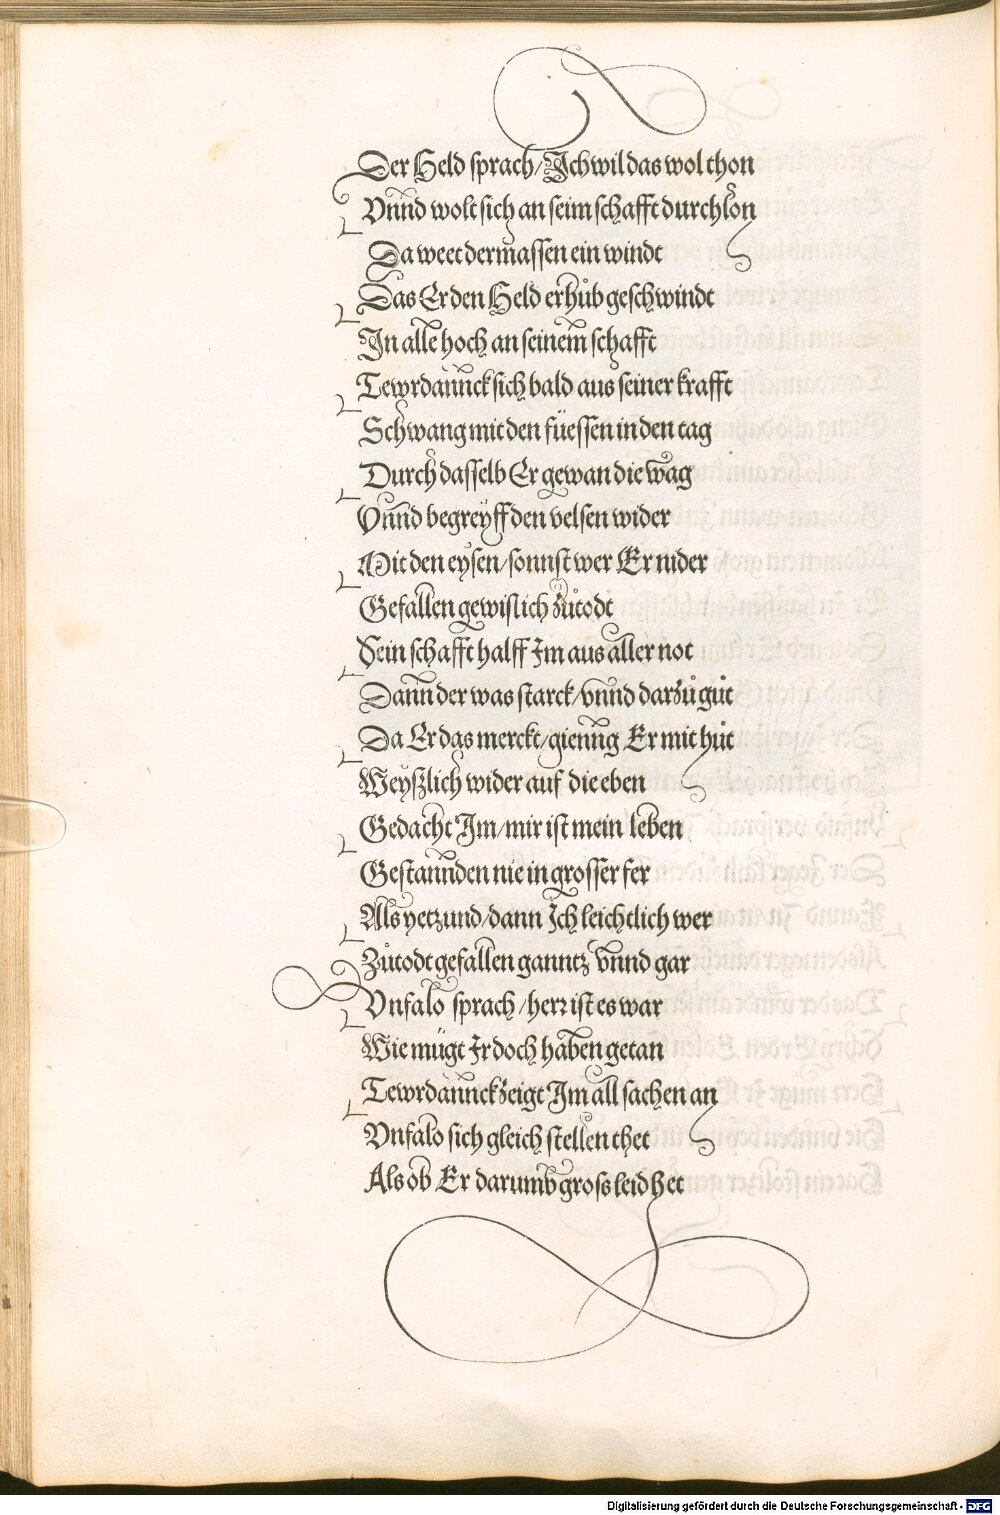 Der Held sprach/Ich wil das wol thon
Vnnd wolt sich an seim schafft durchlon
Da weet dermassen ein windt
Das Er den Held erhůb geschwindt
In alle hoch an seinem schafft
Tewrdannck sich bald aus seiner krafft
Schwang mit den füessen in den tag
Durch dasselb Er gewan die wag
Vnnd begreyff den velsen wider
Mit den eysen/sonnst wer Er nider
Gefallen gewislich zůtodt
Sein schafft halff Im aus aller not
Dann der was starck/vnnd darzů gůt
Da Er das merckt/gienng Er mit hůt
Weyszlich wider auf die eben
Gedacht Im/mir ist mein leben
Gestannden nie in grosser fer
Als yetzund/dann Ich leichtlich wer
Zůtodt gefallen ganntz vnnd gar
Vnfalo sprach/herr ist es war
Wie mügt Ir doch haben getan
Tewrdannck zeigt Im all sachen an
Vnfalo sich gleich stellen thet
Als ob Er darumb gross leid het
Digitalisierung gefördert durch die Deutsche Forschungsgemeinschaft - DFG